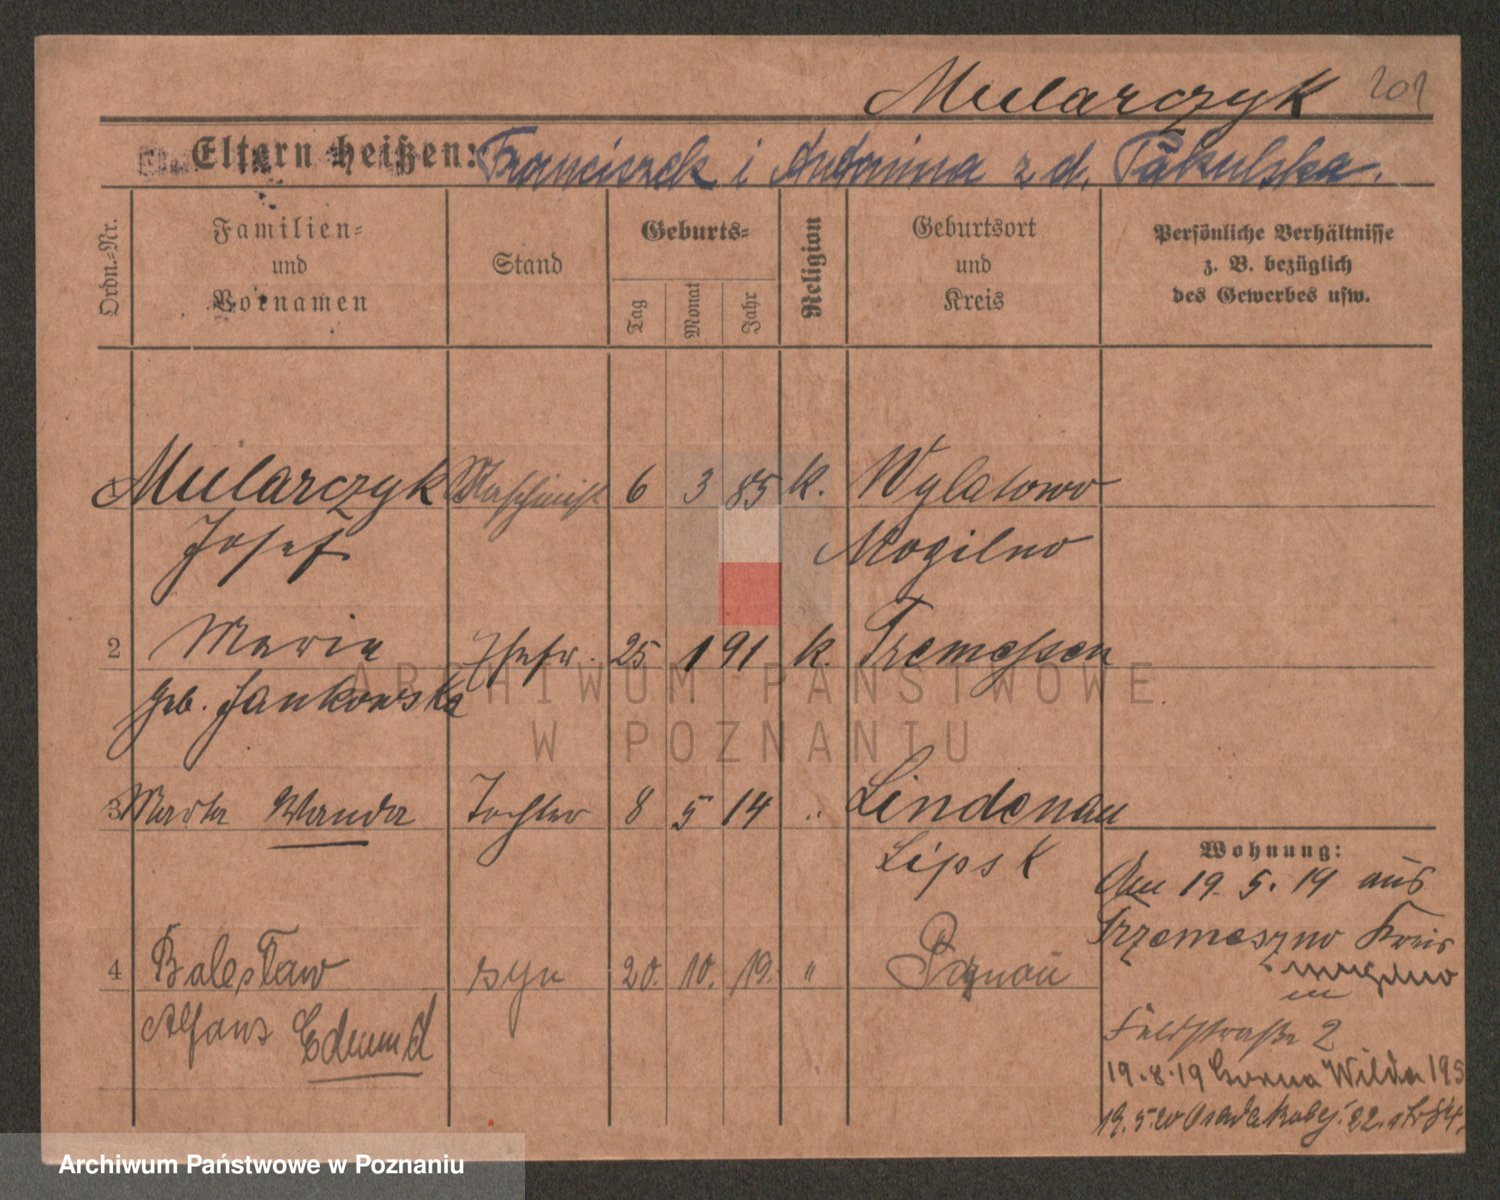 Mularczyk 201
Eltern heißen: Franciszek i Antonina z d. Pąkulska.
Ordn.-Nr.
Familien-
und
Vornamen
Stand
Geburts-
Tag
Monat
Jahr
Religion
Geburtsort
und
Kreis
Persönliche Verhältnisse
z. B. bezüglich
des Gewerbes usw.
Mularczyk Maschinist 6 3 85 k. Wylatowo
Josef Mogilno
2 Maria Ehefr. 25 1 91 k. Tremessen
geb. Jankowska
3 Marta Wanda Tochter 8 5 14 " Lindenau
Lipsk
4 Bolesław syn 20. 10. 19. " Poznań
Alfons Edmund
Wohnung:
Am 19. 5. 19 aus
Trzemeszno Kreis
Mogilno
in
Feldstraße 2
19.8.19 Gorna Wilda 195
19.5.20 22.
ARCHIWUM PAŃSTWOWE
W POZNANIU
Archiwum Państwowe w Poznaniu